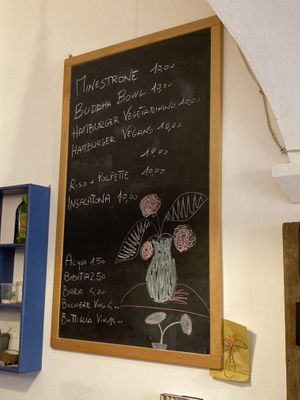 MINESTRONE 10,00
BUDDHA BOWL 13,00
HAMBURGER VEGETARIANO 10,00
HAMBURGER VEGANO 10,00
10,00
RISO + POLPETTE 10,00
INSALATONA 10,00
ACQUA 1.50
BIBITA 2.50
BIRRA 4,00
BICCHIERE VINO 4,00
BOTTIGLIA VINO